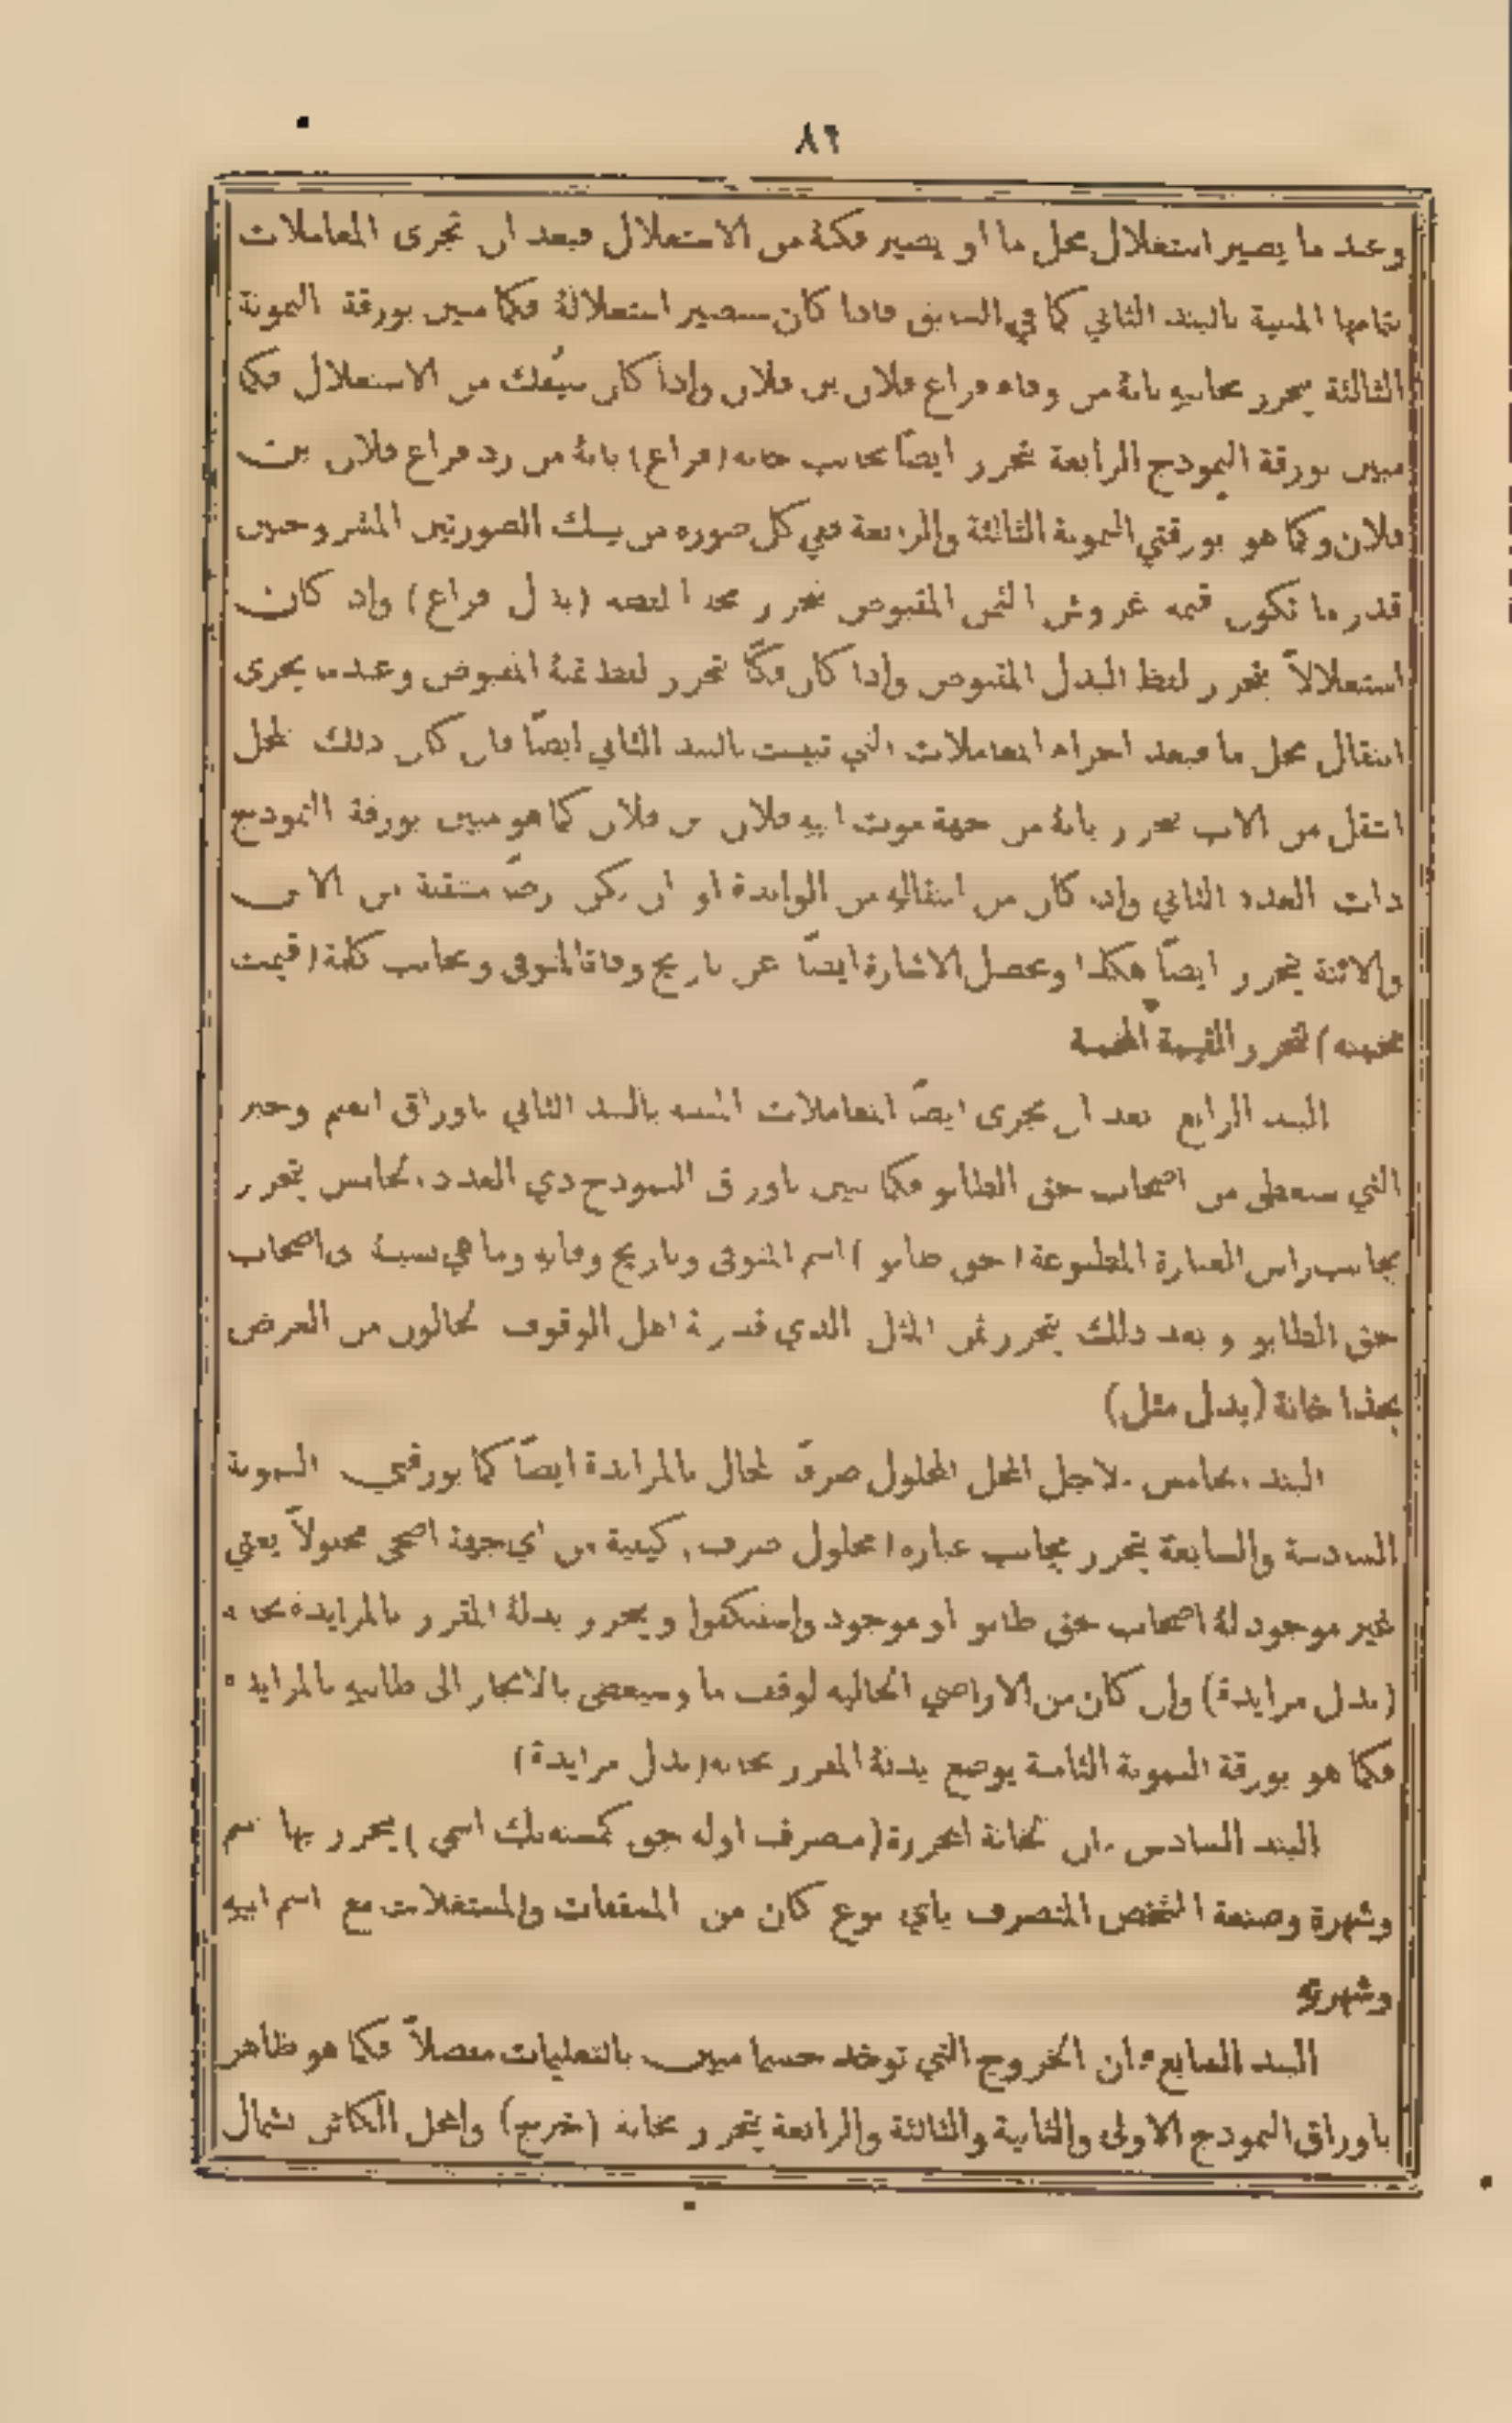 ٨٢
وعند ما يصير استغلال محل ما او يصير فكة من الاستغلال فبعد ان تجرى المعاملات
بتمامها المبنية بالبند الثاني كما في السابق فاذا كان سيصير استغلالة فكما مبين بورقة النمونة
الثالثة يتحرر بجانبه بانة من وفاء فراغ فلان بن فلان واذا كان سيفك من الاستغلال فكما
مبين بورقة النموذج الرابعة يتحرر ايضاً بجانب خانه (فراغ) بانة من رد فراغ فلان بن
فلان وكما هو بورقتي النمونة الثالثة والرابعة ففي كل صوره من تينك الصورتين المشروحين
قدر ما تكون قيمه غروش الثمن المقبوض يتحرر لفظه (بدل فراغ) واذ كان
استغلالاً يتحرر لفظ البدل المقبوض واذا كان فكاً يتحرر لفظ ثمنة المقبوض وعندما يجرى
انتقال محل ما فبعد اجراء المعاملات التي تبينت بالبند الثاني ايضاً فان كان ذلك المحل
انتقل من الاب يتحرر بانة من جهة موت ابيه فلان بن فلان كما هو مبين بورقة النموذج
ذات العدد الثاني واذا كان من انتقاله من الوالدة او ان يكن ارضاً منتقلة من الابن
والابنة يتحرر ايضاً هكذا وتحصل الاشارة ايضاً عن تاريخ وفاة المتوفى وبجانب كلمة (قيمت
مخمنه) تتحرر القيمة المخمنة
البند الرابع بعد ان تجرى ايضاً المعاملات المبينه بالبند الثاني باوراق العلم وخبر
التي ستعطى من اصحاب حق الطابو فكما مبين باوراق النموذج ذي العدد الخامس يتحرر
بجانب راس العبارة المطبوعة (حق طابو) اسم المتوفى وتاريخ وفاته وما هي نسبة اصحاب
حق الطابو و بعد ذلك يتحرر ثمن المثل الذي قدرة اهل الوقوف الخالون من الغرض
بحذا خانة (بدل مثل)
البند الخامس لاجل المحل المحلول صرفاً المحال بالمزايدة ايضاً كما بورقتي النمونة
السادسة والسابعة يتحرر بجانب عباره (محلول صرف) كيفية من اي جهة اضحى محلولاً يعني
غير موجود لة اصحاب حق طابو او موجود واستنكفوا ويحرر بدلة المقرر بالمزايدة
(بدل مزايدة) وان كان من الاراضي الخاليه لوقف ما وسيعطى بالايجار الى طالبيه بالمزايدة
فكما هو بورقة النمونة الثامنة يوضع بدلة المقرر بخانه (بدل مزايدة)
البند السادس ان الخانة المحررة (متصرف اوله جق كمسنه نك اسمي) يتحرر بها اسم
وشهرة وصنعة الشخص المتصرف باي نوع كان من المسقفات والمستغلات مع اسم ابيه
وشهرته
البند السابع ان الخروج التي توخذ حسبما مبين بالتعليمات مفصلاً فكما هو ظاهر
باوراق النموذج الاولى والثانية والثالثة والرابعة يتحرر بخانة (خرج) والمحل الكائن شمال